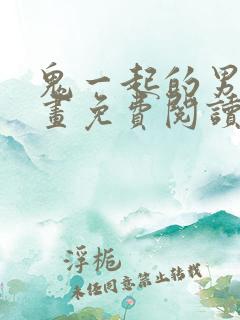 鬼一起的男
畫免費閱讀
浮栀
未经同意禁止转载